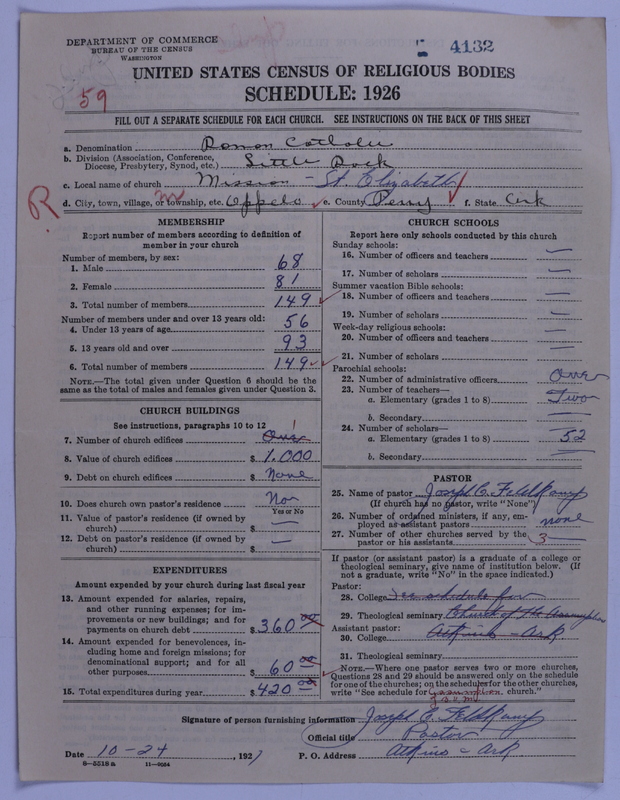 DEPARTMENT OF COMMERCE
BUREAU OF THE CENSUS
WASHINGTON
4132
59
UNITED STATES CENSUS OF RELIGIOUS BODIES
SCHEDULE: 1926
FILL OUT A SEPARATE SCHEDULE FOR EACH CHURCH. SEE INSTRUCTIONS ON THE BACK OF THIS SHEET
a. Denomination Roman Catholic
b. Division (Association, Conference, Diocese, Presbytery, Synod, etc.) Little Rock
c. Local name of church Mission - St. Elizabeth
R
d. City, town, village, or township, etc. Oppelo e. County Perry f. State Ark
MEMBERSHIP
Report number of members according to definition of member in your church
Number of members, by sex:
1. Male 68
2. Female 81
3. Total number of members 149
Number of members under and over 13 years old:
4. Under 13 years of age 56
5. 13 years old and over 93
6. Total number of members 149
NOTE.—The total given under Question 6 should be the same as the total of males and females given under Question 3.
CHURCH BUILDINGS
See instructions, paragraphs 10 to 12
7. Number of church edifices One 1
8. Value of church edifices $ 1.000
9. Debt on church edifices $ None
10. Does church own pastor's residence? No
Yes or No
11. Value of pastor's residence (if owned by church) $ —
12. Debt on pastor's residence (if owned by church) $ —
EXPENDITURES
Amount expended by your church during last fiscal year
13. Amount expended for salaries, repairs, and other running expenses; for improvements or new buildings; and for payments on church debt $ 360 00
14. Amount expended for benevolences, including home and foreign missions; for denominational support; and for all other purposes $ 60 00
15. Total expenditures during year $ 420 00
CHURCH SCHOOLS
Report here only schools conducted by this church
Sunday schools:
16. Number of officers and teachers —
17. Number of scholars —
Summer vacation Bible schools:
18. Number of officers and teachers —
19. Number of scholars —
Week-day religious schools:
20. Number of officers and teachers —
21. Number of scholars —
Parochial schools:
22. Number of administrative officers One
23. Number of teachers—
a. Elementary (grades 1 to 8) Two
b. Secondary —
24. Number of scholars—
a. Elementary (grades 1 to 8) 52
b. Secondary —
PASTOR
25. Name of pastor Joseph C. Feldkamp
(If church has no pastor, write "None")
26. Number of ordained ministers, if any, employed as assistant pastors none
27. Number of other churches served by the pastor or his assistants 3
If pastor (or assistant pastor) is a graduate of a college or theological seminary, give name of institution below. (If not a graduate, write "No" in the space indicated.)
Pastor:
28. College See schedule for
29. Theological seminary Church of the Assumption
Assistant pastor:
30. College Atkins - Ark.
31. Theological seminary
NOTE.—Where one pastor serves two or more churches, Questions 28 and 29 should be answered only on the schedule for one of the churches; on the schedules for the other churches, write "See schedule for Assumption church."
of B.V.M.
Signature of person furnishing information Joseph C. Feldkamp
Official title Pastor
Date 10-24, 1927 P. O. Address Atkins - Ark
8—5518 a 11—9054